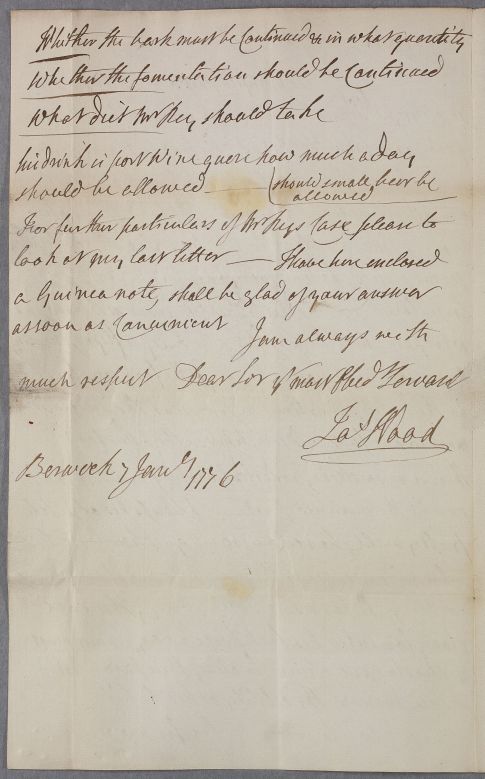 Whether the bark must be Continued & in what quantity
Whether the fomentation should be Continued
What diet Mr Rey, should take
his drink is port Wine quere how much a day,
should be allowed — should small beer be
allowed
For further particulars of Mr Reys Case please to
look at my last letter — I have here enclosed
a Guinea note, shall be glad of your answer
as soon as Convenient I am always with
much respect Dear Sir Yr most Obed Servant
Jas Wood
Berwick 7 Jany 1776